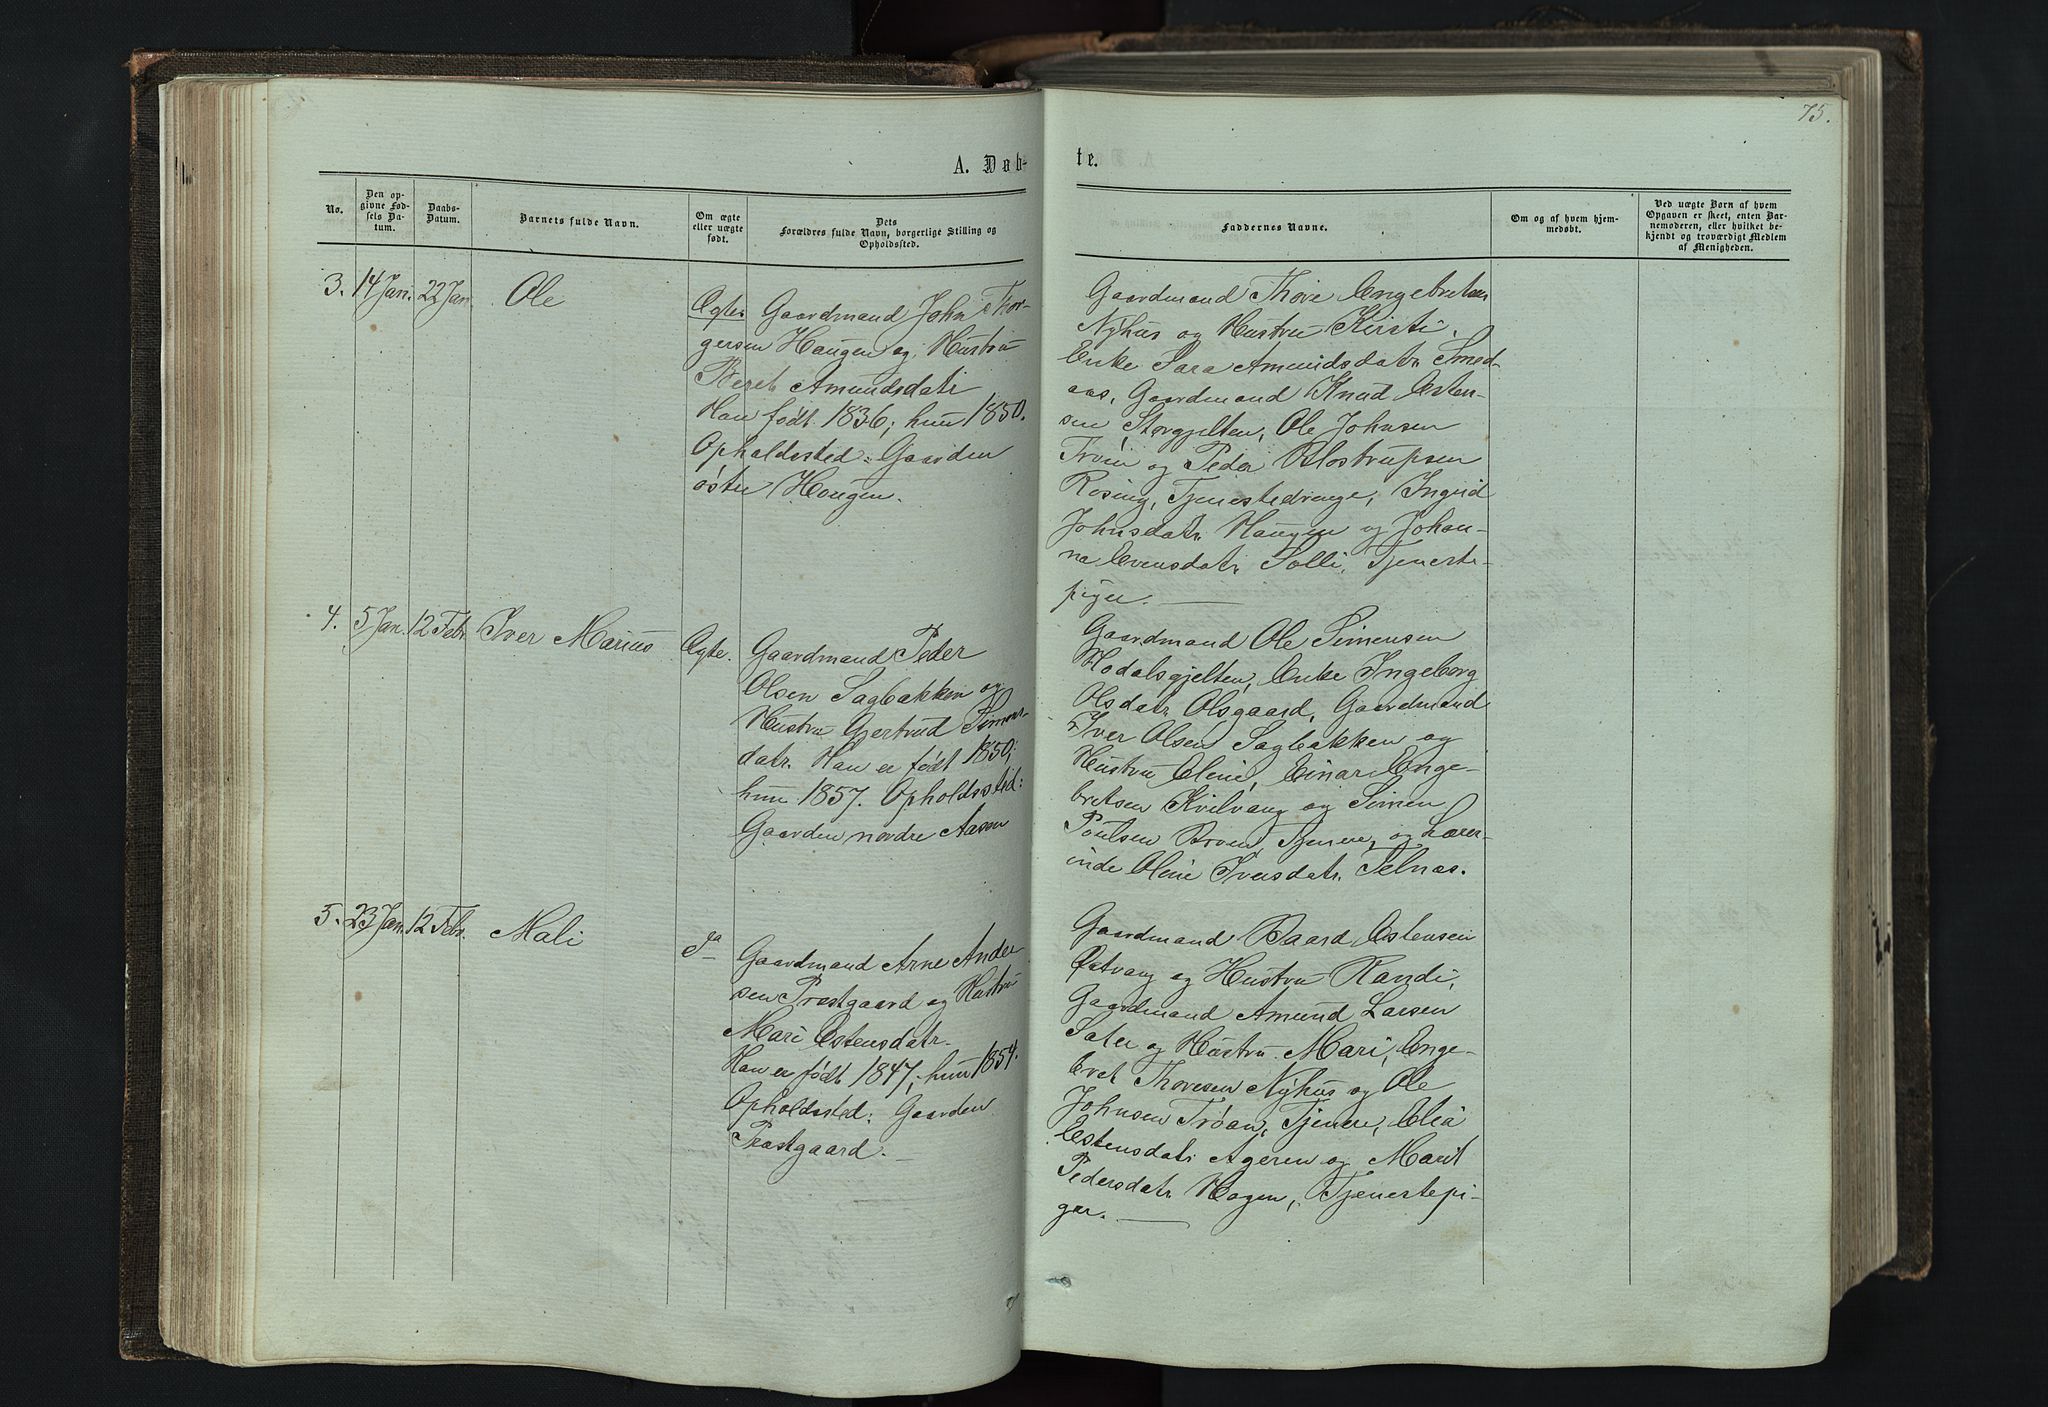 75.
A. Døb-
te.
No.
Den op-
givne Fød-
sels Da-
tum.
Daabs-
Datum.
Barnets fulde Navn.
Om ægte
eller uægte
født.
Dets
Forældres fulde Navn, borgerlige Stilling og
Opholdssted.
Faddernes Navne.
Om og af hvem hjem-
medøbt.
Ved uægte Børn af hvem
Opgaven er skeet, enten Bar-
nemoderen, eller hvilket be-
kjendt og troværdigt Medlem
af Menigheden.
3. 14 Jan. 22 Jan. Ole
Ægte.
Gaardmand John Thor-
gersen Haugen og Hustru
Beret Amundsdatr
Han født 1836; hun 1850.
Opholdssted: Gaarden
østre Haugen.
Gaardmand Thore Engebretsen
Nyhus og Hustru Kirsti,
Enke Sara Amundsdatr Smed-
aas, Gaardmand Knud Esten-
sen Storgjelten, Ole Johnsen
Trøen og Peder Olostrupsen
Rosing, Tjenestedrenge, Ingrid
Johnsdatr. Haugen og Johan-
na Evensdatr. Solli, Tjeneste-
piger.
4. 5 Jan. 12 Febr. Iver Marius
Ægte.
Gaardmand Peder
Olsen Sagbakken og
Hustru Gjertrud Simons-
datr. Han er født 1850;
hun 1857. Opholdssted:
Gaarden nordre Aasen
Gaardmand Ole Simensen
Hodalsgjelten, Enke Ingeborg
Olsdatr Olsgaard, Gaardmand
Iver Olsen Sagbakken og
Hustru Oline, Einar Enge-
bretsen Kvilvang og Simen
Poulsen Broen, Tjenere, og Lærer-
inde Oline Iversdatr. Telnæs.
5. 23 Jan. 12 Febr. Mali
Ja
Gaardmand Arne Ander
sen Præstgaard og Hustru
Mari Estensdatr.
Han er født 1847; hun 1854.
Opholdssted: Gaarden
Præstgaard.
Gaardmand Baard Estensen
Østvang og Hustru Randi,
Gaardmand Amund Larsen
Sater og Hustru Mari, Enge-
bret Thoresen Nyhus og Ole
Johnsen Trøan, Tjenere, Elia
Estensdatr Ageren og Marit
Pedersdatr Hagen, Tjenestepi-
ger.